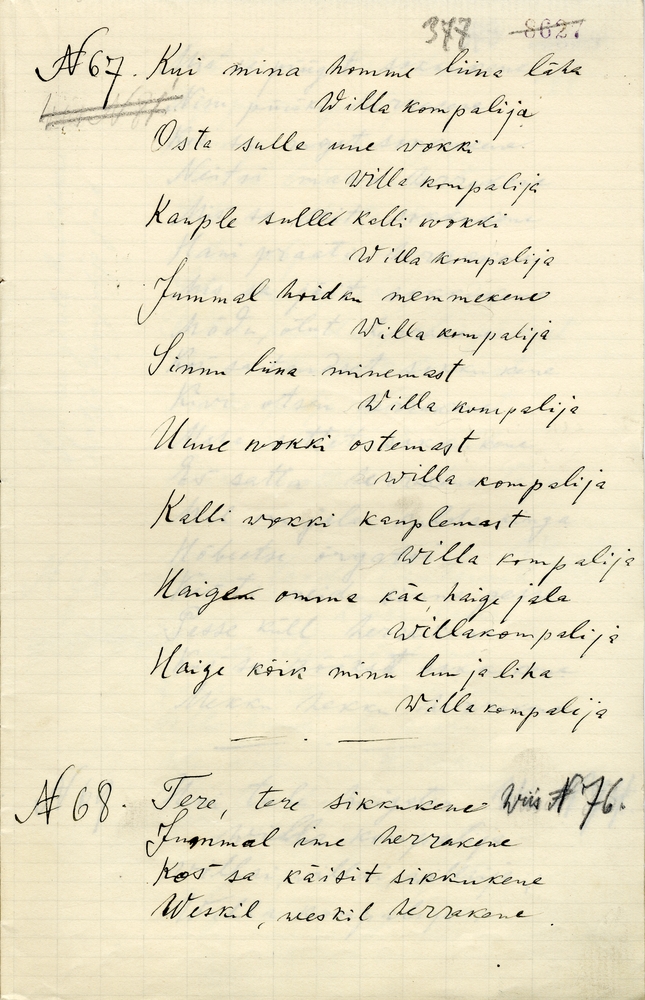 377 8627
№ 67. Kui mina homme liina läha
Willa kompalija
Osta sulle uue wokki
Willa kompalija
Kauple sulle kalli wokki
Willa kompalija
Jummal hoidku memmekene
Willa kompalija
Sinnu liina minemast
Willa kompalija
Uune wokki ostemast
Willa kompalija
Kalli wokki kauplemast
Willa kompalija
Haige omma käe, haige jala
Willakompalija
Haige kõik minu luu ja liha
Willa kompalija
№ 68. Tere, tere sikkukene Wiis № 76.
Jummal ime herrakene
Kos sa käisit sikkukene
Weskil, weskil herrakene.